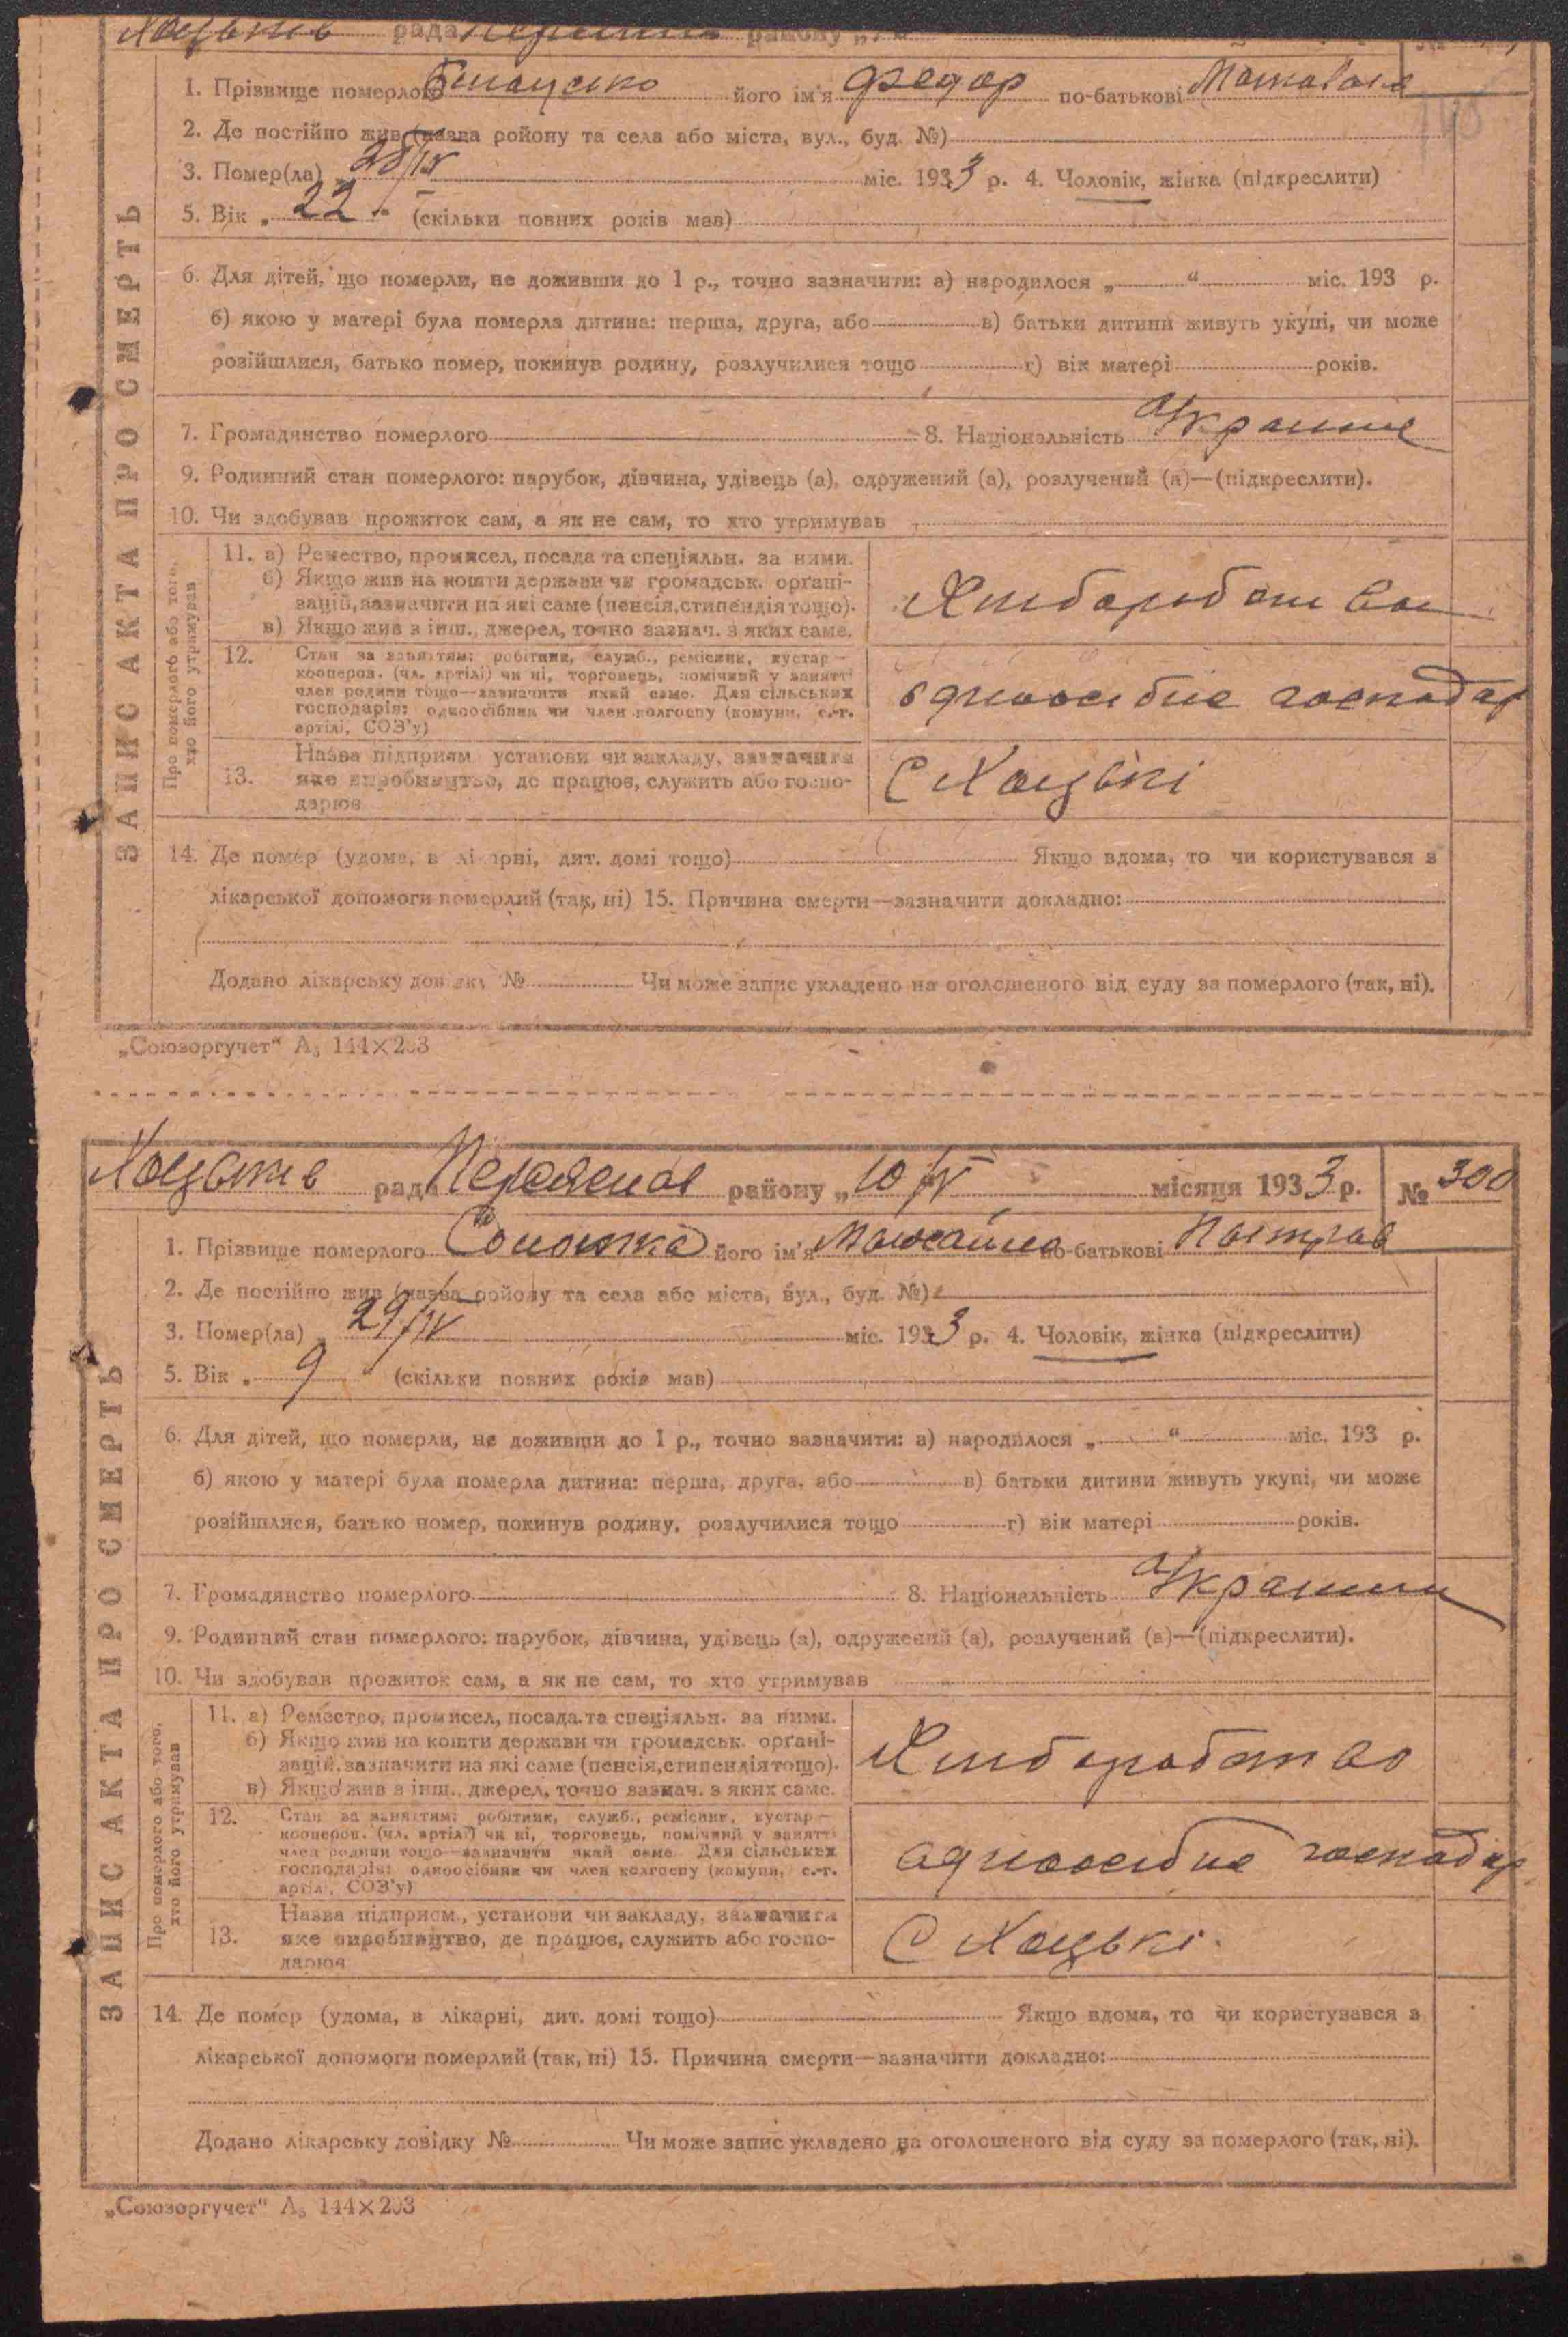 Хацьків рада району
1. Прізвище померлого його ім'я Федор по-батькові
2. Де постійно жив (назва ройону та села або міста, вул., буд. №)
3. Помер(ла) „ 28/IV міс. 1933 р. 4. Чоловік, жінка (підкреслити)
5. Вік „ 22 (скільки повних років мав)
6. Для дітей, що померли, не доживши до 1 р., точно зазначити: а) народилося „ “ міс. 193 р.
б) якою у матері була померла дитина: перша, друга, або в) батьки дитини живуть укупі, чи може
розійшлися, батько помер, покинув родину, розлучилися тощо г) вік матері років.
7. Громадянство померлого 8. Національність
9. Родинний стан померлого: парубок, дівчина, удівець (а), одружений (а), розлучений (а)—(підкреслити).
10. Чи здобував прожиток сам, а як не сам, то хто утримував
ЗАПИС АКТА ПРО СМЕРТЬ
Про померлого або того,
хто його утримував
11. а) Ремество, промисел, посада та спеціяльн. за ними.
б) Якщо жив на кошти держави чи громадськ. органі-
зацій, зазначити на які саме (пенсія, стипендія тощо).
в) Якщо жив з інш., джерел, точно зазнач. з яких саме.
Хліборобство
12. Стан за заняттям: робітник, служб., ремісник, кустар—
кооперов. (чл. артілі) чи ні, торговець, помічний у занятті
член родини тощо—зазначити який саме. Для сільських
господарів: одноосібник чи член колгоспу (комуни, с.-г.
артілі, СОЗ'у)
одноосібне господар
13. Назва підприєм. установи чи закладу, зазначити
яке виробництво, де працює, служить або госпо-
дарює
С Хацькі
14. Де помер (удома, в лікарні, дит. домі тощо) Якщо вдома, то чи користувався з
лікарської допомоги померлий (так, ні) 15. Причина смерти—зазначити докладно:
Додано лікарську довідку № Чи може запис укладено на оголошеного від суду за померлого (так, ні).
„Союзоргучет“ А₅ 144×203
Хацьків рада району „ 10/IV місяця 1933 р. № 300
1. Прізвище померлого його ім'я по-батькові
2. Де постійно жив (назва ройону та села або міста, вул., буд. №)
3. Помер(ла) „ 29/IV міс. 1933 р. 4. Чоловік, жінка (підкреслити)
5. Вік „ 9 (скільки повних років мав)
6. Для дітей, що померли, не доживши до 1 р., точно зазначити: а) народилося „ “ міс. 193 р.
б) якою у матері була померла дитина: перша, друга, або в) батьки дитини живуть укупі, чи може
розійшлися, батько помер, покинув родину, розлучилися тощо г) вік матері років.
7. Громадянство померлого 8. Національність
9. Родинний стан померлого: парубок, дівчина, удівець (а), одружений (а), розлучений (а)—(підкреслити).
10. Чи здобував прожиток сам, а як не сам, то хто утримував
ЗАПИС АКТА ПРО СМЕРТЬ
Про померлого або того,
хто його утримував
11. а) Ремество, промисел, посада та спеціяльн. за ними.
б) Якщо жив на кошти держави чи громадськ. органі-
зацій, зазначити на які саме (пенсія, стипендія тощо).
в) Якщо жив з інш., джерел, точно зазнач. з яких саме.
Хліборобство
12. Стан за заняттям: робітник, служб., ремісник, кустар—
кооперов. (чл. артілі) чи ні, торговець, помічний у занятті
член родини тощо—зазначити який саме. Для сільських
господарів: одноосібник чи член колгоспу (комуни, с.-г.
артілі, СОЗ'у)
одноосібне господар
13. Назва підприєм., установи чи закладу, зазначити
яке виробництво, де працює, служить або госпо-
дарює
С Хацькі.
14. Де помер (удома, в лікарні, дит. домі тощо) Якщо вдома, то чи користувався з
лікарської допомоги померлий (так, ні) 15. Причина смерти—зазначити докладно:
Додано лікарську довідку № Чи може запис укладено на оголошеного від суду за померлого (так, ні).
„Союзоргучет“ А₅ 144×203